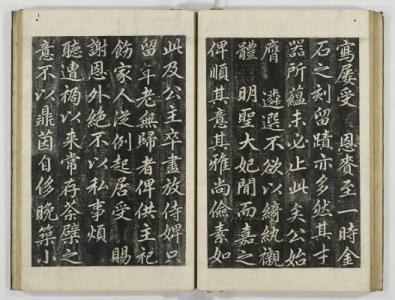 寫屡受 恩賚至一時金
石之刻留蹟亦多然其才
器所蘊未必止此矣公始
膺 遴選不欲以綺紈襯
體 明聖大妃聞而嘉之
俾順其意其雅尚儉素如
此及公主卒盡放侍婢只
留年老無歸者俾供主祀
飭家人從例起居受 賜
謝恩外絶不以私事煩
聽遭禍以來常存荼蘖之
意不以鼎茵自侈晚築小